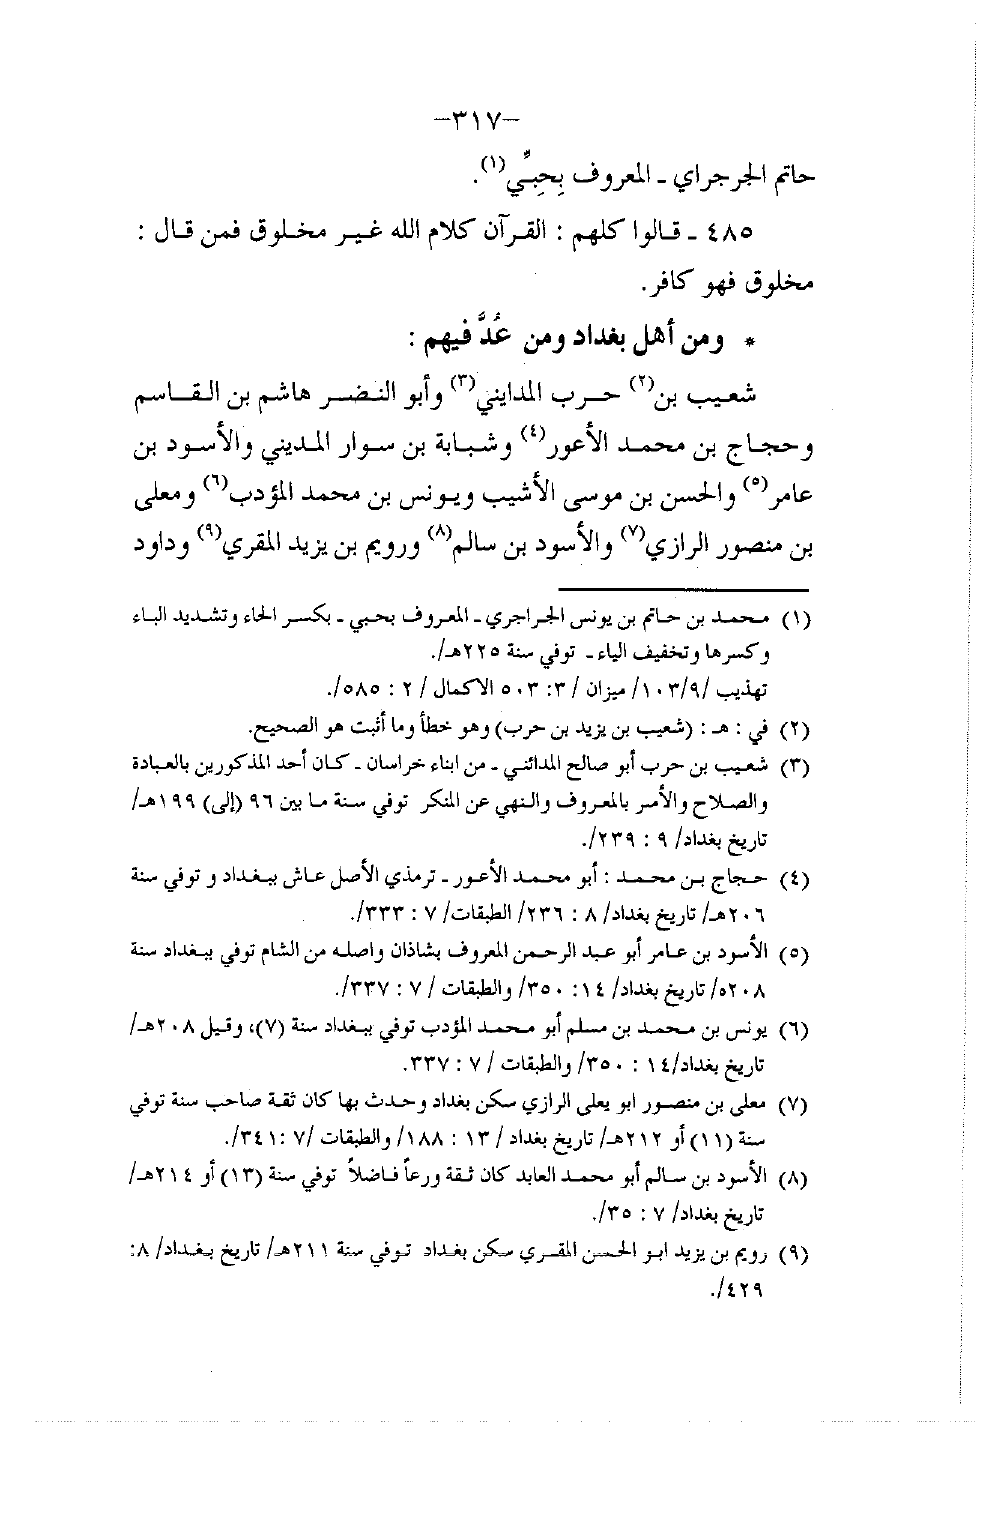 -٣١٧-
حاتم الجرجراي - المعروف بِحِبِّي(١).
٤٨٥ - قالوا كلهم : القرآن كلام الله غير مخلوق فمن قال :
مخلوق فهو كافر.
* ومن أهل بغداد ومن عُدَّ فيهم :
شعيب بن(٢) حرب المدايني(٣) وأبو النضر هاشم بن القاسم
وحجاج بن محمد الأعور(٤) وشبابة بن سوار المديني والأسود بن
عامر(٥) والحسن بن موسى الأشيب ويونس بن محمد المؤدب(٦) ومعلى
بن منصور الرازي(٧) والأسود بن سالم(٨) ورويم بن يزيد المقري(٩) وداود
(١) محمد بن حاتم بن يونس الجراجري - المعروف بحبي - بكسر الحاء وتشديد الباء
وكسرها وتخفيف الياء - توفي سنة ٢٢٥هـ/.
تهذيب /١٠٣/٩/ ميزان /٣: ٥٠٣ الاكمال / ٢ : ٥٨٥/.
(٢) في : هـ : (شعيب بن يزيد بن حرب) وهو خطأ وما أثبت هو الصحيح.
(٣) شعيب بن حرب أبو صالح المدائني - من ابناء خراسان - كان أحد المذكورين بالعبادة
والصلاح والأمر بالمعروف والنهي عن المنكر توفي سنة ما بين ٩٦ (إلى) ١٩٩هـ/
تاريخ بغداد/ ٩ : ٢٣٩/.
(٤) حجاج بن محمد : أبو محمد الأعور - ترمذي الأصل عاش ببغداد و توفي سنة
٢٠٦هـ/ تاريخ بغداد/ ٨ : ٢٣٦/ الطبقات/ ٧ : ٣٣٣/.
(٥) الأسود بن عامر أبو عبد الرحمن المعروف بشاذان واصله من الشام توفي ببغداد سنة
٢٠٨ه/ تاريخ بغداد/ ١٤: ٣٥٠/ والطبقات / ٧ : ٣٣٧/.
(٦) يونس بن محمد بن مسلم أبو محمد المؤدب توفي ببغداد سنة (٧)، وقيل ٢٠٨هـ/
تاريخ بغداد/١٤ : ٣٥٠/ والطبقات / ٧ : ٣٣٧.
(٧) معلى بن منصور ابو يعلى الرازي سكن بغداد وحدث بها كان ثقة صاحب سنة توفي
سنة (١١) أو ٢١٢هـ/ تاريخ بغداد / ١٣ : ١٨٨/ والطبقات /٧ :٣٤١/.
(٨) الأسود بن سالم أبو محمد العابد كان ثقة ورعاً فاضلاً توفي سنة (١٣) أو ٢١٤هـ/
تاريخ بغداد/ ٧ : ٣٥/.
(٩) رويم بن يزيد ابو الحسن المقري سكن بغداد توفي سنة ٢١١هـ/ تاريخ بغداد/ ٨:
٤٢٩/.